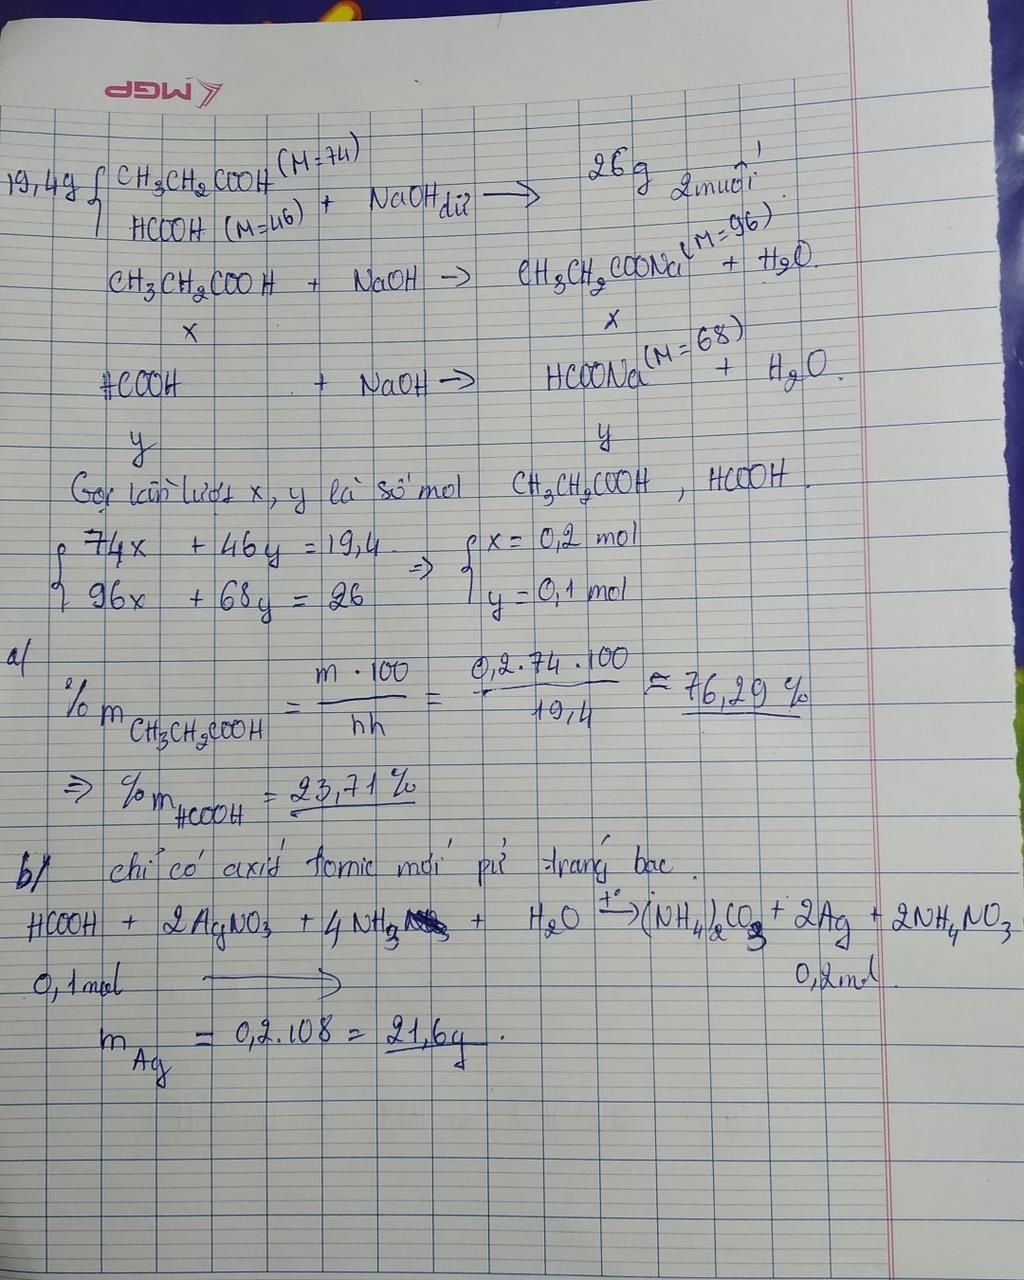 MGP
19,4g { CH₃CH₂COOH (M=74) + NaOH dư ⟶ 26g 2 muối
HCOOH (M=46)
CH₃CH₂COOH + NaOH → CH₃CH₂COONa (M=96) + H₂O.
x x
HCOOH + NaOH → HCOONa (M=68) + H₂O.
y y
Gọi lần lượt x, y là số mol CH₃CH₂COOH, HCOOH.
{ 74x + 46y = 19,4 ⇒ { x = 0,2 mol
96x + 68y = 26 y = 0,1 mol
a/
%m CH₃CH₂COOH = m . 100 / hh = 0,2 . 74 . 100 / 19,4 ≈ 76,29 %
⇒ %m HCOOH = 23,71 %
b/ chỉ có axit fomic mới pứ tráng bạc.
HCOOH + 2AgNO₃ + 4NH₃ + H₂O t°→ (NH₄)₂CO₃ + 2Ag + 2NH₄NO₃
0,1 mol ⟶ 0,2 mol.
m Ag = 0,2 . 108 = 21,6g.